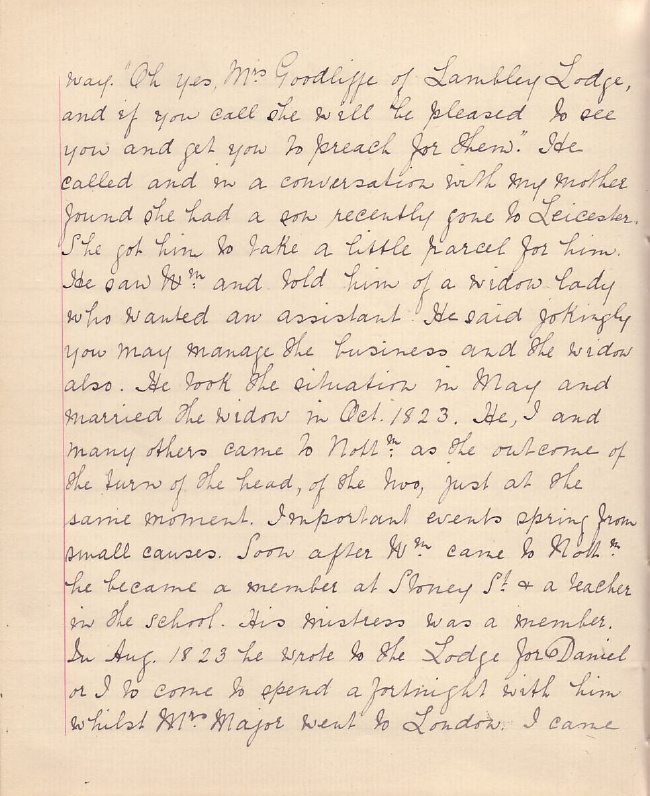 way. "Oh yes, Mrs Goodliffe of Lambley Lodge,
and if you call she will be pleased to see
you and get you to preach for them." He
called and in a conversation with my mother
found she had a son recently gone to Leicester.
She got him to take a little parcel for him.
He saw Wm and told him of a widow lady
who wanted an assistant. He said jokingly
you may manage the business and the widow
also. He took the situation in May and
married the widow in Oct. 1823. He, I and
many others came to Nottm as the outcome of
the turn of the head, of the two, just at the
same moment. Important events spring from
small causes. Soon after Wm came to Nottm
he became a member at Stoney St & a teacher
in the school. His mistress was a member.
In Aug. 1823 he wrote to the Lodge for Daniel
or I to come to spend a fortnight with him
whilst Mrs Major went to London. I came